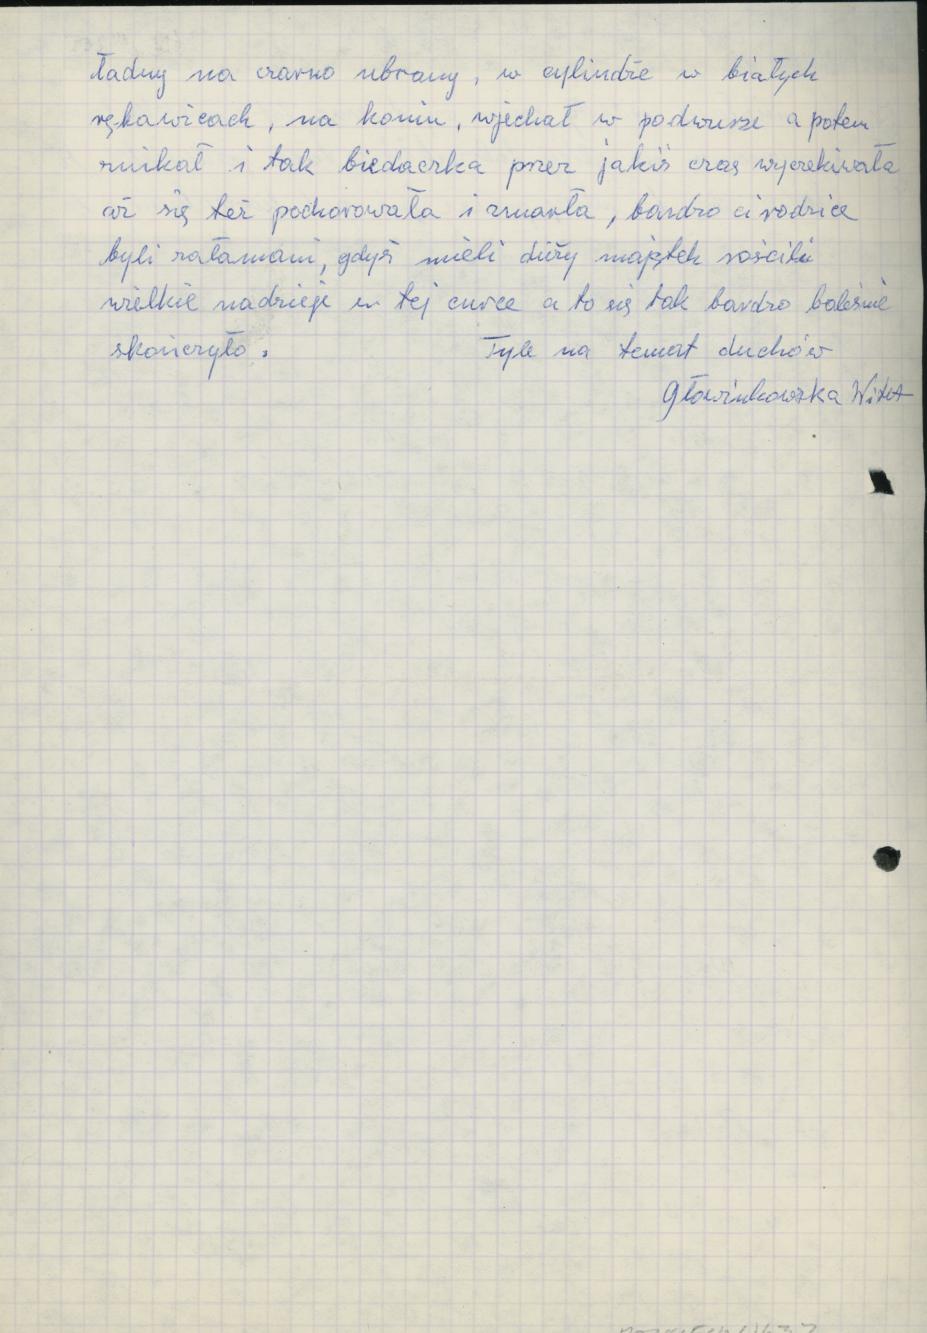 ładny na czarno ubrany, w cylindże w białych
rękawicach, na koniu, wjechał w podwurze a potem
znikał i tak biedaczka przez jakiś czas wyczekiwała
aż się też pochorowała i zmarła, bardzo ci rodzice
byli załamani, gdyż mieli duży majątek rościli
wielkie nadzieje w tej curce a to się tak bardzo boleśnie
skończyło. Tyle na temat duchów
Głowinkowska Wita